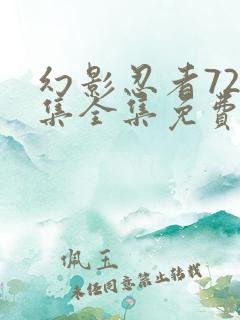 幻影忍者72
集全集免费
佩玉
未经同意禁止转载